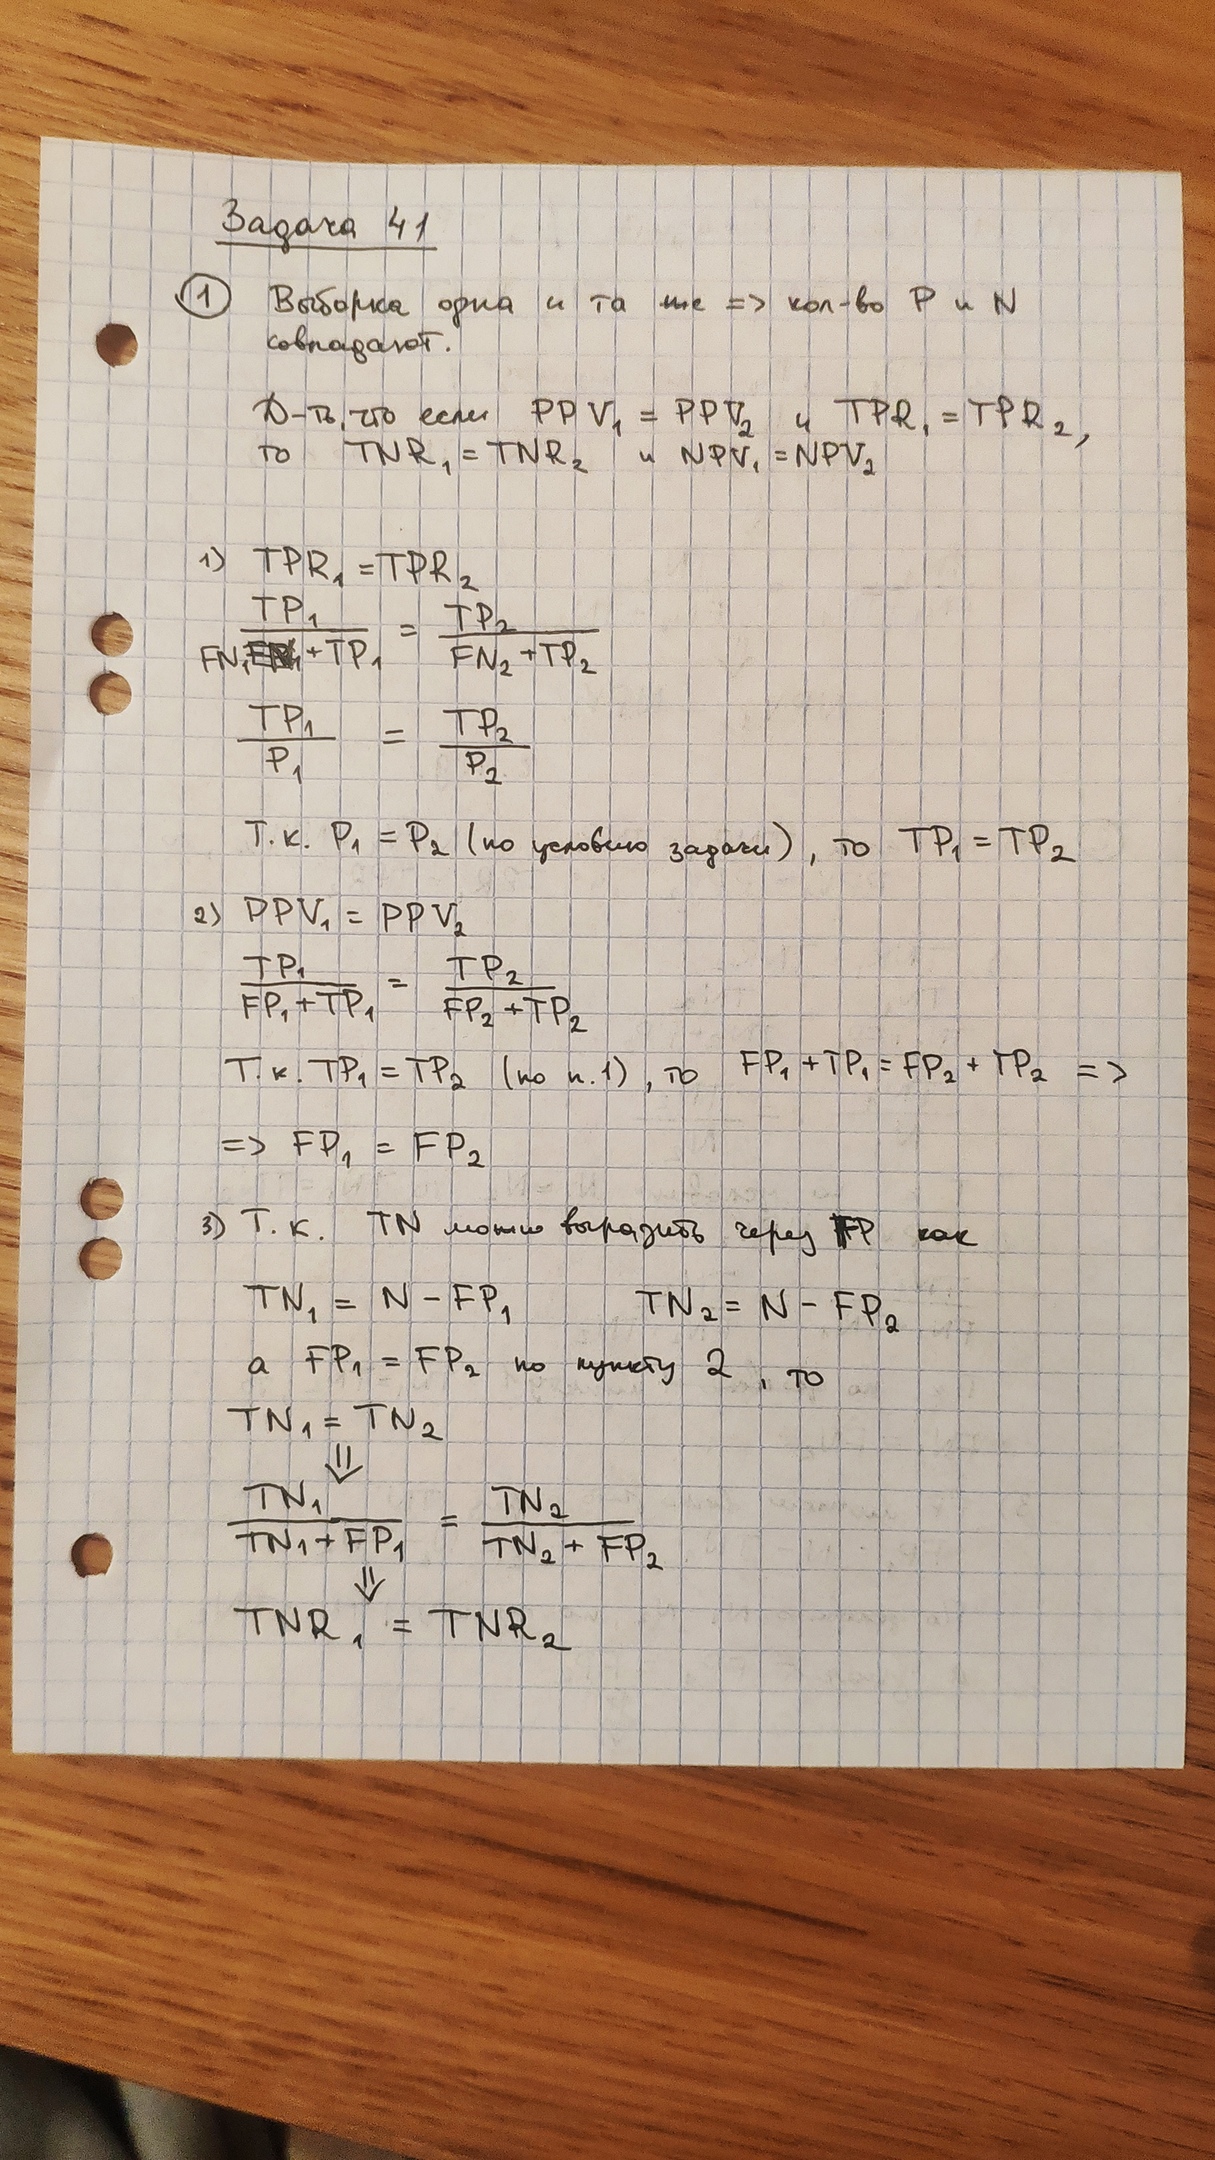 Задача 41
① Выборка одна и та же => кол-во P и N
совпадают.
Д-ть, что если PPV₁ = PPV₂ и TPR₁ = TPR₂,
то TNR₁ = TNR₂ и NPV₁ = NPV₂
1) TPR₁ = TPR₂
TP₁ / (FN₁ + TP₁) = TP₂ / (FN₂ + TP₂)
TP₁ / P₁ = TP₂ / P₂
Т.к. P₁ = P₂ (по условию задачи), то TP₁ = TP₂
2) PPV₁ = PPV₂
TP₁ / (FP₁ + TP₁) = TP₂ / (FP₂ + TP₂)
Т.к. TP₁ = TP₂ (по п.1), то FP₁ + TP₁ = FP₂ + TP₂ =>
=> FP₁ = FP₂
3) Т.к. TN можно выразить через FP как
TN₁ = N - FP₁ TN₂ = N - FP₂
а FP₁ = FP₂ по пункту 2, то
TN₁ = TN₂
⇓
TN₁ / (TN₁ + FP₁) = TN₂ / (TN₂ + FP₂)
⇓
TNR₁ = TNR₂